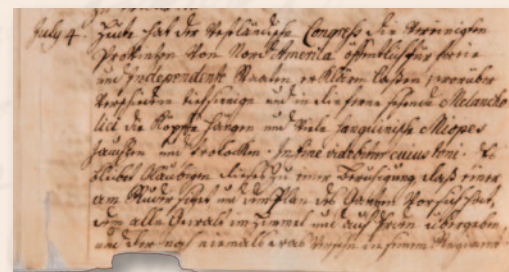 July 4. Heute hat der Vestländische Congress die Vereinigten
Provinzen von Nord America öffentlich für freie
und Independente Staaten erklären laßen, worüber
verschiedene tiefsinnige und in die ferne sehende Melancho
lici die Köpfe hangen und viele sanguinische Miopes
jauchzen und frolocken. In fine videbitur cuius toni. Es
bleibet Glaubigen dieses zu einer Beruhigung daß einer
am Ruder sitzet und den Plan des Gantzen vor sich hat,
dem alle Gewalt im Himmel und auf Erden übergeben,
und der noch niemals etwas versehn in seinem Regimente